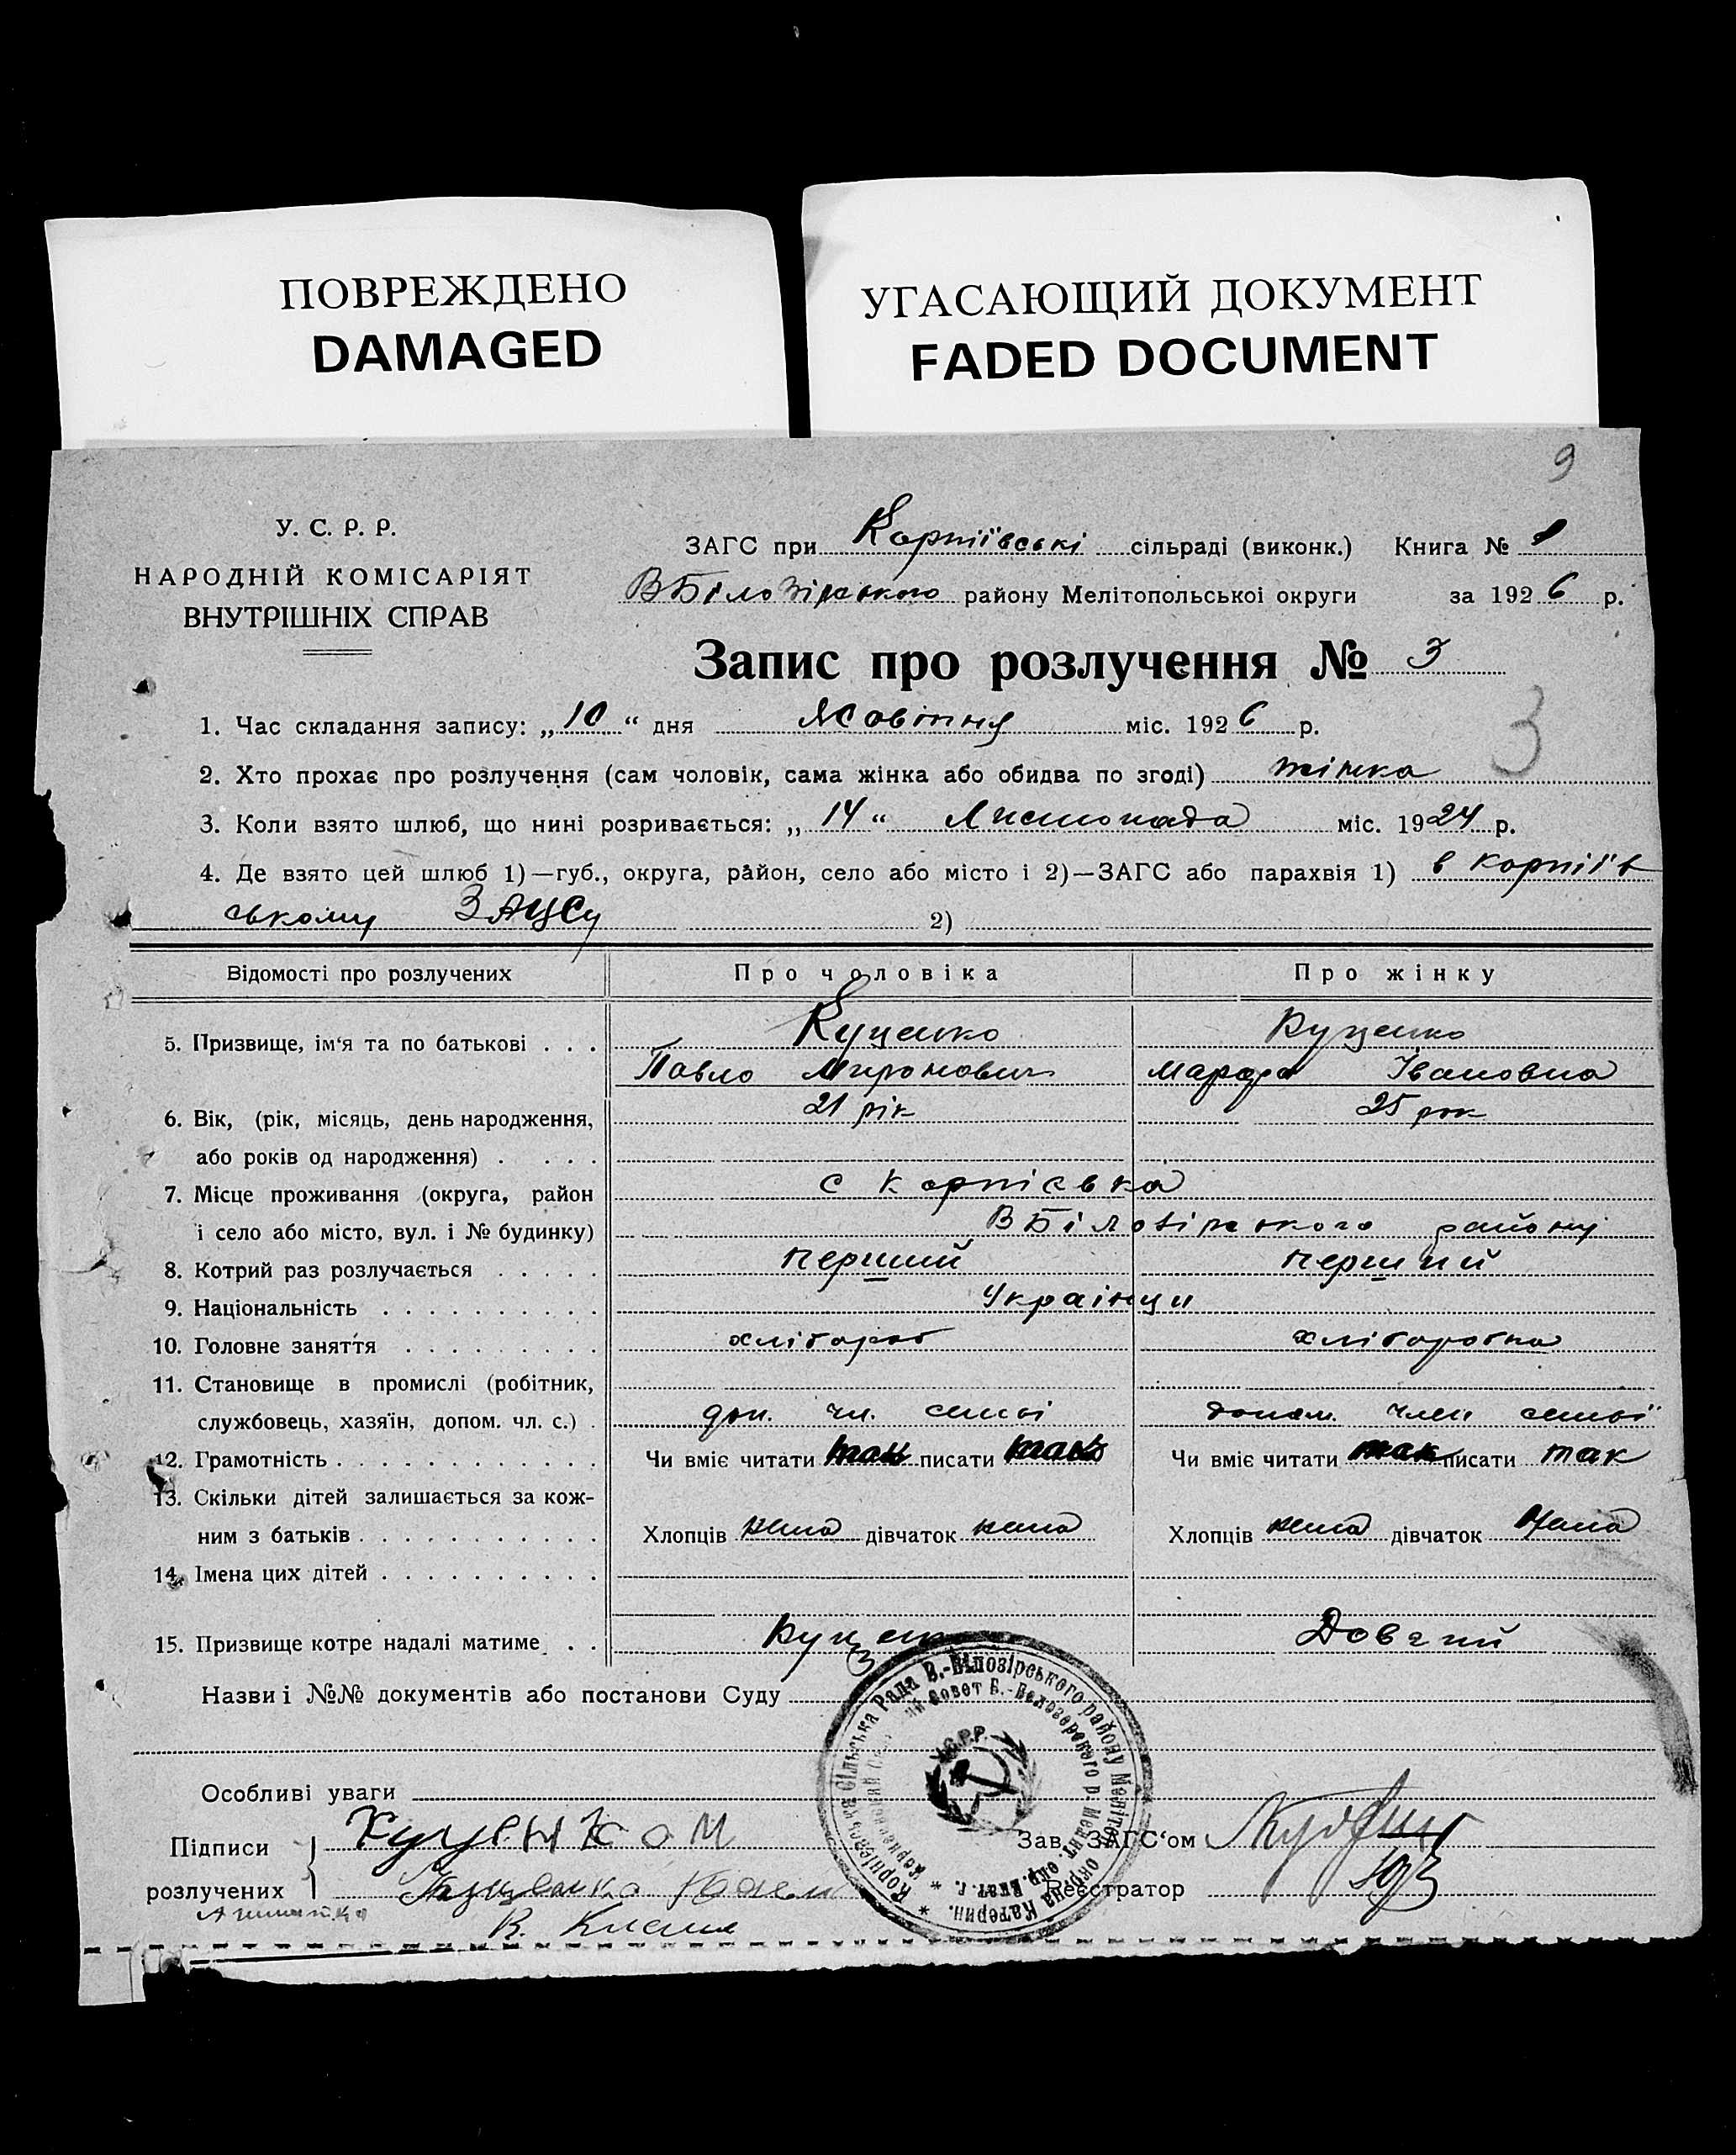 ПОВРЕЖДЕНО
DAMAGED
УГАСАЮЩИЙ ДОКУМЕНТ
FADED DOCUMENT
9
У. С. Р. Р.
НАРОДНІЙ КОМІСАРІЯТ
ВНУТРІШНІХ СПРАВ
ЗАГС при Корніївські сільраді (виконк.) Книга № 1
ВБілозірського району Мелітопольської округи за 1926 р.
Запис про розлучення № 3
3
1. Час складання запису: „10“ дня Жовтня міс. 1926 р.
2. Хто прохає про розлучення (сам чоловік, сама жінка або обидва по згоді) жінка
3. Коли взято шлюб, що нині розривається: „14“ Листопада міс. 1924 р.
4. Де взято цей шлюб 1)—губ., округа, район, село або місто і 2)—ЗАГС або парахвія 1) в Корніїв
ському ЗАЦСу 2)
Відомості про розлучених Про чоловіка Про жінку
5. Призвище, ім'я та по батькові . . . Куценко Куценко
Павло Миронович Івановна
6. Вік, (рік, місяць, день народження, 21 рік 25 рок
або років од народження) . . . .
7. Місце проживання (округа, район с Корнієвка
і село або місто, вул. і № будинку) ВБілозірського району
8. Котрий раз розлучається . . . . . перший перший
9. Національність . . . . . . . . . . Українци
10. Головне заняття . . . . . . . . . хлібороб хліборобка
11. Становище в промислі (робітник,
службовець, хазяїн, допом. чл. с.) . доп. чл. семьі допом. член семьї
12. Грамотність . . . . . . . . . . . . Чи вміє читати так писати так Чи вміє читати так писати так
13. Скільки дітей залишається за кож-
ним з батьків . . . . . . . . . . . Хлопців нема дівчаток нема Хлопців нема дівчаток нема
14. Імена цих дітей . . . . . . . . . .
15. Призвище котре надалі матиме . . Куценко Довгий
Назви і №№ документів або постанови Суду
Особливі уваги
Підписи
розлучених
Зав. ЗАГС'ом
Реєстратор
Корніївська Сільська Рада В.-Білозірського району Меліт. округи Катерин.
У.С.Р.Р.